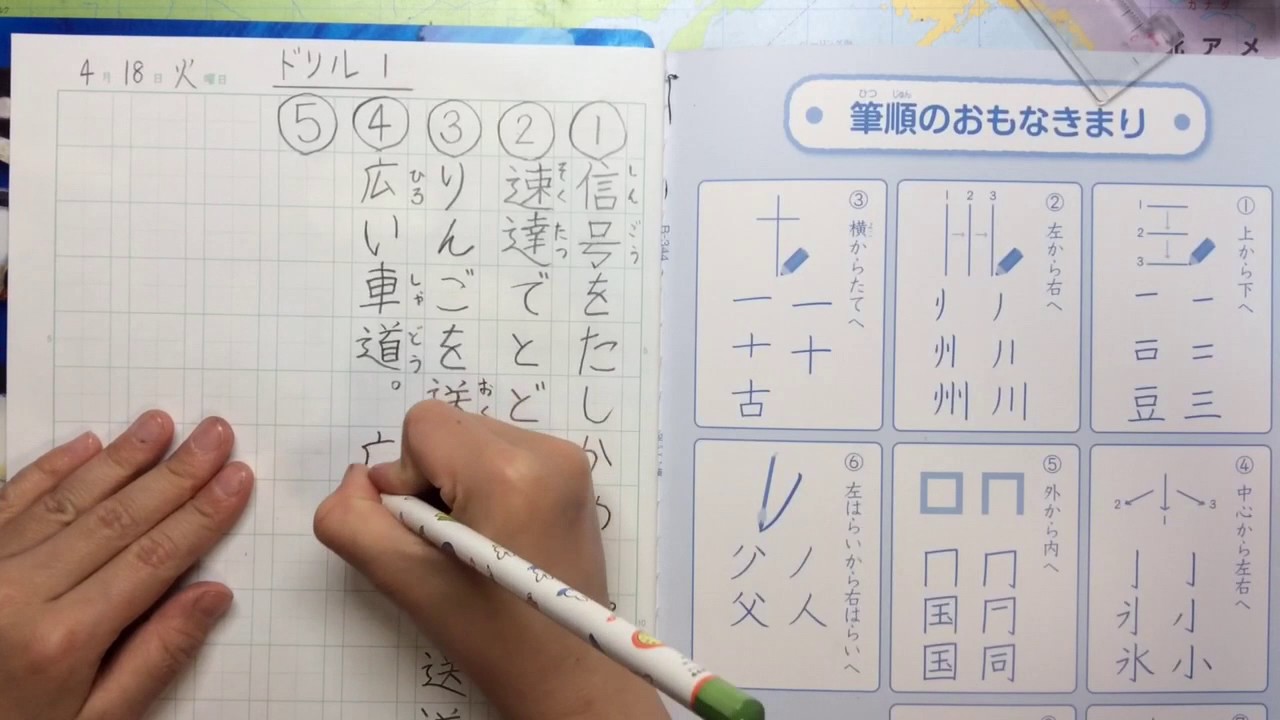 4月18日火曜日
ドリル1
①信号をたしか
しんごう
②速達でとど
そくたつ
③りんごを送
おく
送
④広い車道。
ひろ しゃどう
⑤
アメ
カナダ
筆順のおもなきまり
ひつ じゅん
①上から下へ
1
2
3
一 一
二 𠮛
三 豆
②左から右へ
1 2 3
川
州
③横からたてへ
よこ
十
一 一
十 十
古
④中心から左右へ
2 1 3
亅 亅
小 氷
⑤外から内へ
冂 冂
国
同 国
⑥左はらいから右はらいへ
ノ
人 父
B-344